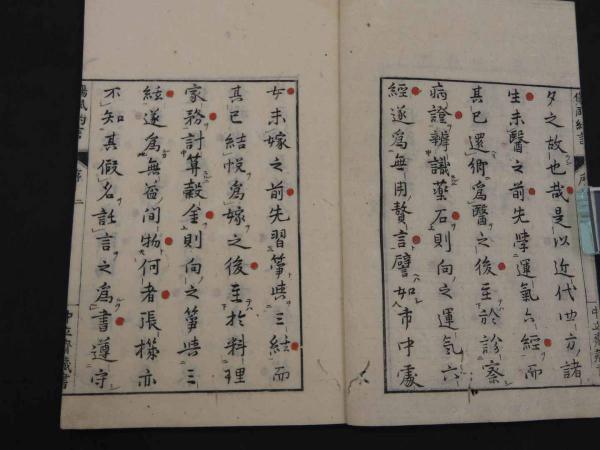 夕之故也哉是以近代四方諸
生未醫之前先學運氣六經而
其已還鄉爲醫之後至於診察
病證辨識藥石則向之運氣六
經遂爲無用贅言譬如市中處
女未嫁之前先習箏與三絃而
其已結帨爲嫁之後至於料理
家務計算穀金則向之箏與三
絃遂爲無益間物何者張機亦
不知其假名託言之爲書遵守
傷風約言
序
二
中立齋藏書